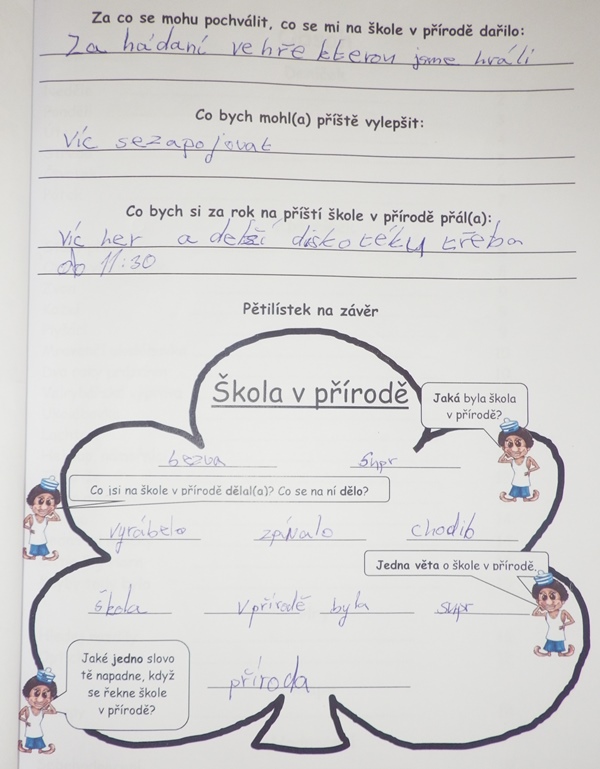 Za co se mohu pochválit, co se mi na škole v přírodě dařilo:
Za hádaní ve hře kterou jsme hráli
Co bych mohl(a) příště vylepšit:
víc sezapojovat
Co bych si za rok na příští škole v přírodě přál(a):
víc her a delší diskotéku třeba
do 11:30
Pětilístek na závěr
Škola v přírodě
Jaká byla škola
v přírodě?
bezva supr
Co jsi na škole v přírodě dělal(a)? Co se na ní dělo?
vyrábělo zpívalo chodilo
Jedna věta o škole v přírodě.
škola v přírodě byla supr
Jaké jedno slovo
tě napadne, když
se řekne škole
v přírodě?
příroda